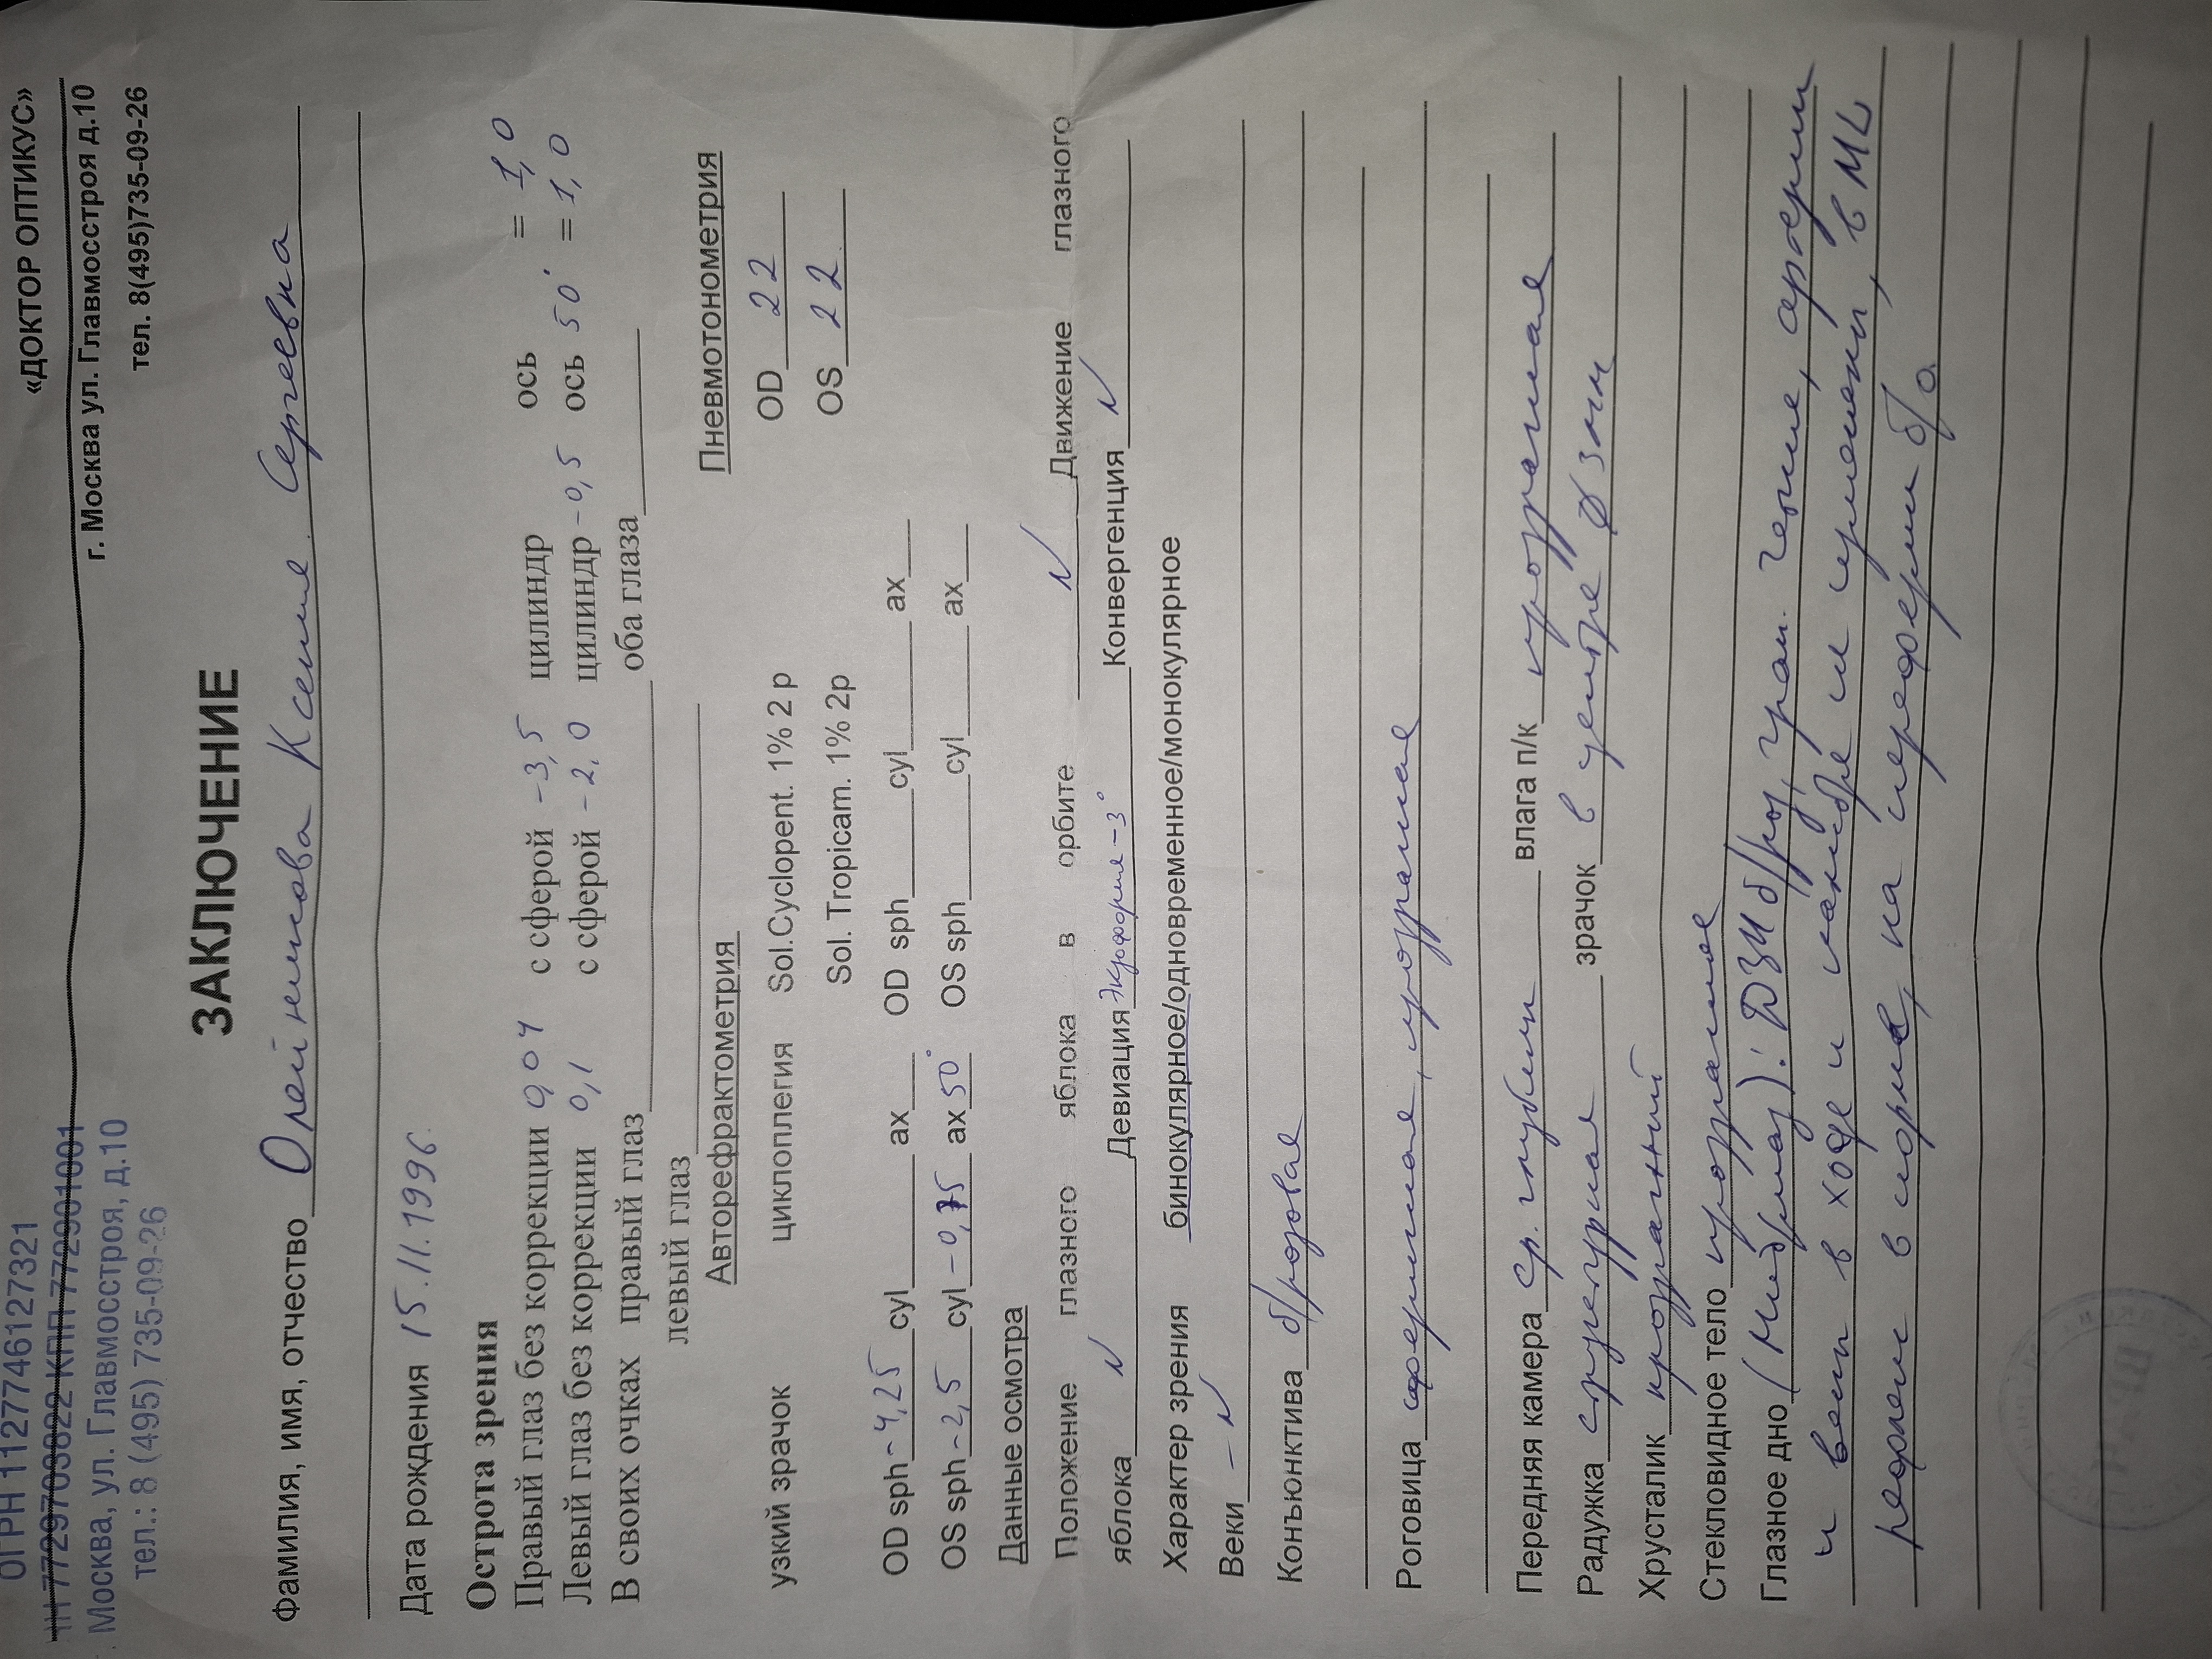 ОГРН 1127746127321
7729703822 КПП 772901001
Москва, ул. Главмосстроя, д.10
тел.: 8 (495) 735-09-26
«ДОКТОР ОПТИКУС»
г. Москва ул. Главмосстроя д.10
тел. 8(495)735-09-26
ЗАКЛЮЧЕНИЕ
Фамилия, имя, отчество Олейникова Ксения Сергеевна
Дата рождения 15.11.1996
Острота зрения
Правый глаз без коррекции 0,04 с сферой -3,5 цилиндр ось = 1,0
Левый глаз без коррекции 0,1 с сферой -2,0 цилиндр -0,5 ось 50° = 1,0
В своих очках правый глаз оба глаза
левый глаз
Авторефрактометрия Пневмотонометрия
узкий зрачок циклоплегия Sol.Cyclopent. 1% 2 р OD 22
Sol. Tropicam. 1% 2р OS 22
OD sph -4,25 cyl ax OD sph cyl ax
OS sph -2,5 cyl -0,75 ax 50° OS sph cyl ax
Данные осмотра
Положение глазного яблока в орбите N Движение глазного
яблока N Девиация экзофория -3° Конвергенция N
Характер зрения бинокулярное/одновременное/монокулярное
Веки - N
Конъюнктива б/розовая
Роговица сферичная, прозрачная
Передняя камера ср. глубины влага п/к прозрачная
Радужка структурная зрачок в центре Ø 3мм
Хрусталик прозрачный
Стекловидное тело прозрачное
Глазное дно (Мидримакс): ДЗН б/роз, гран. четкие, артерии
и вены в ходе и калибре не изменены, в МЗ
рефлекс в норме, на периферии б/о